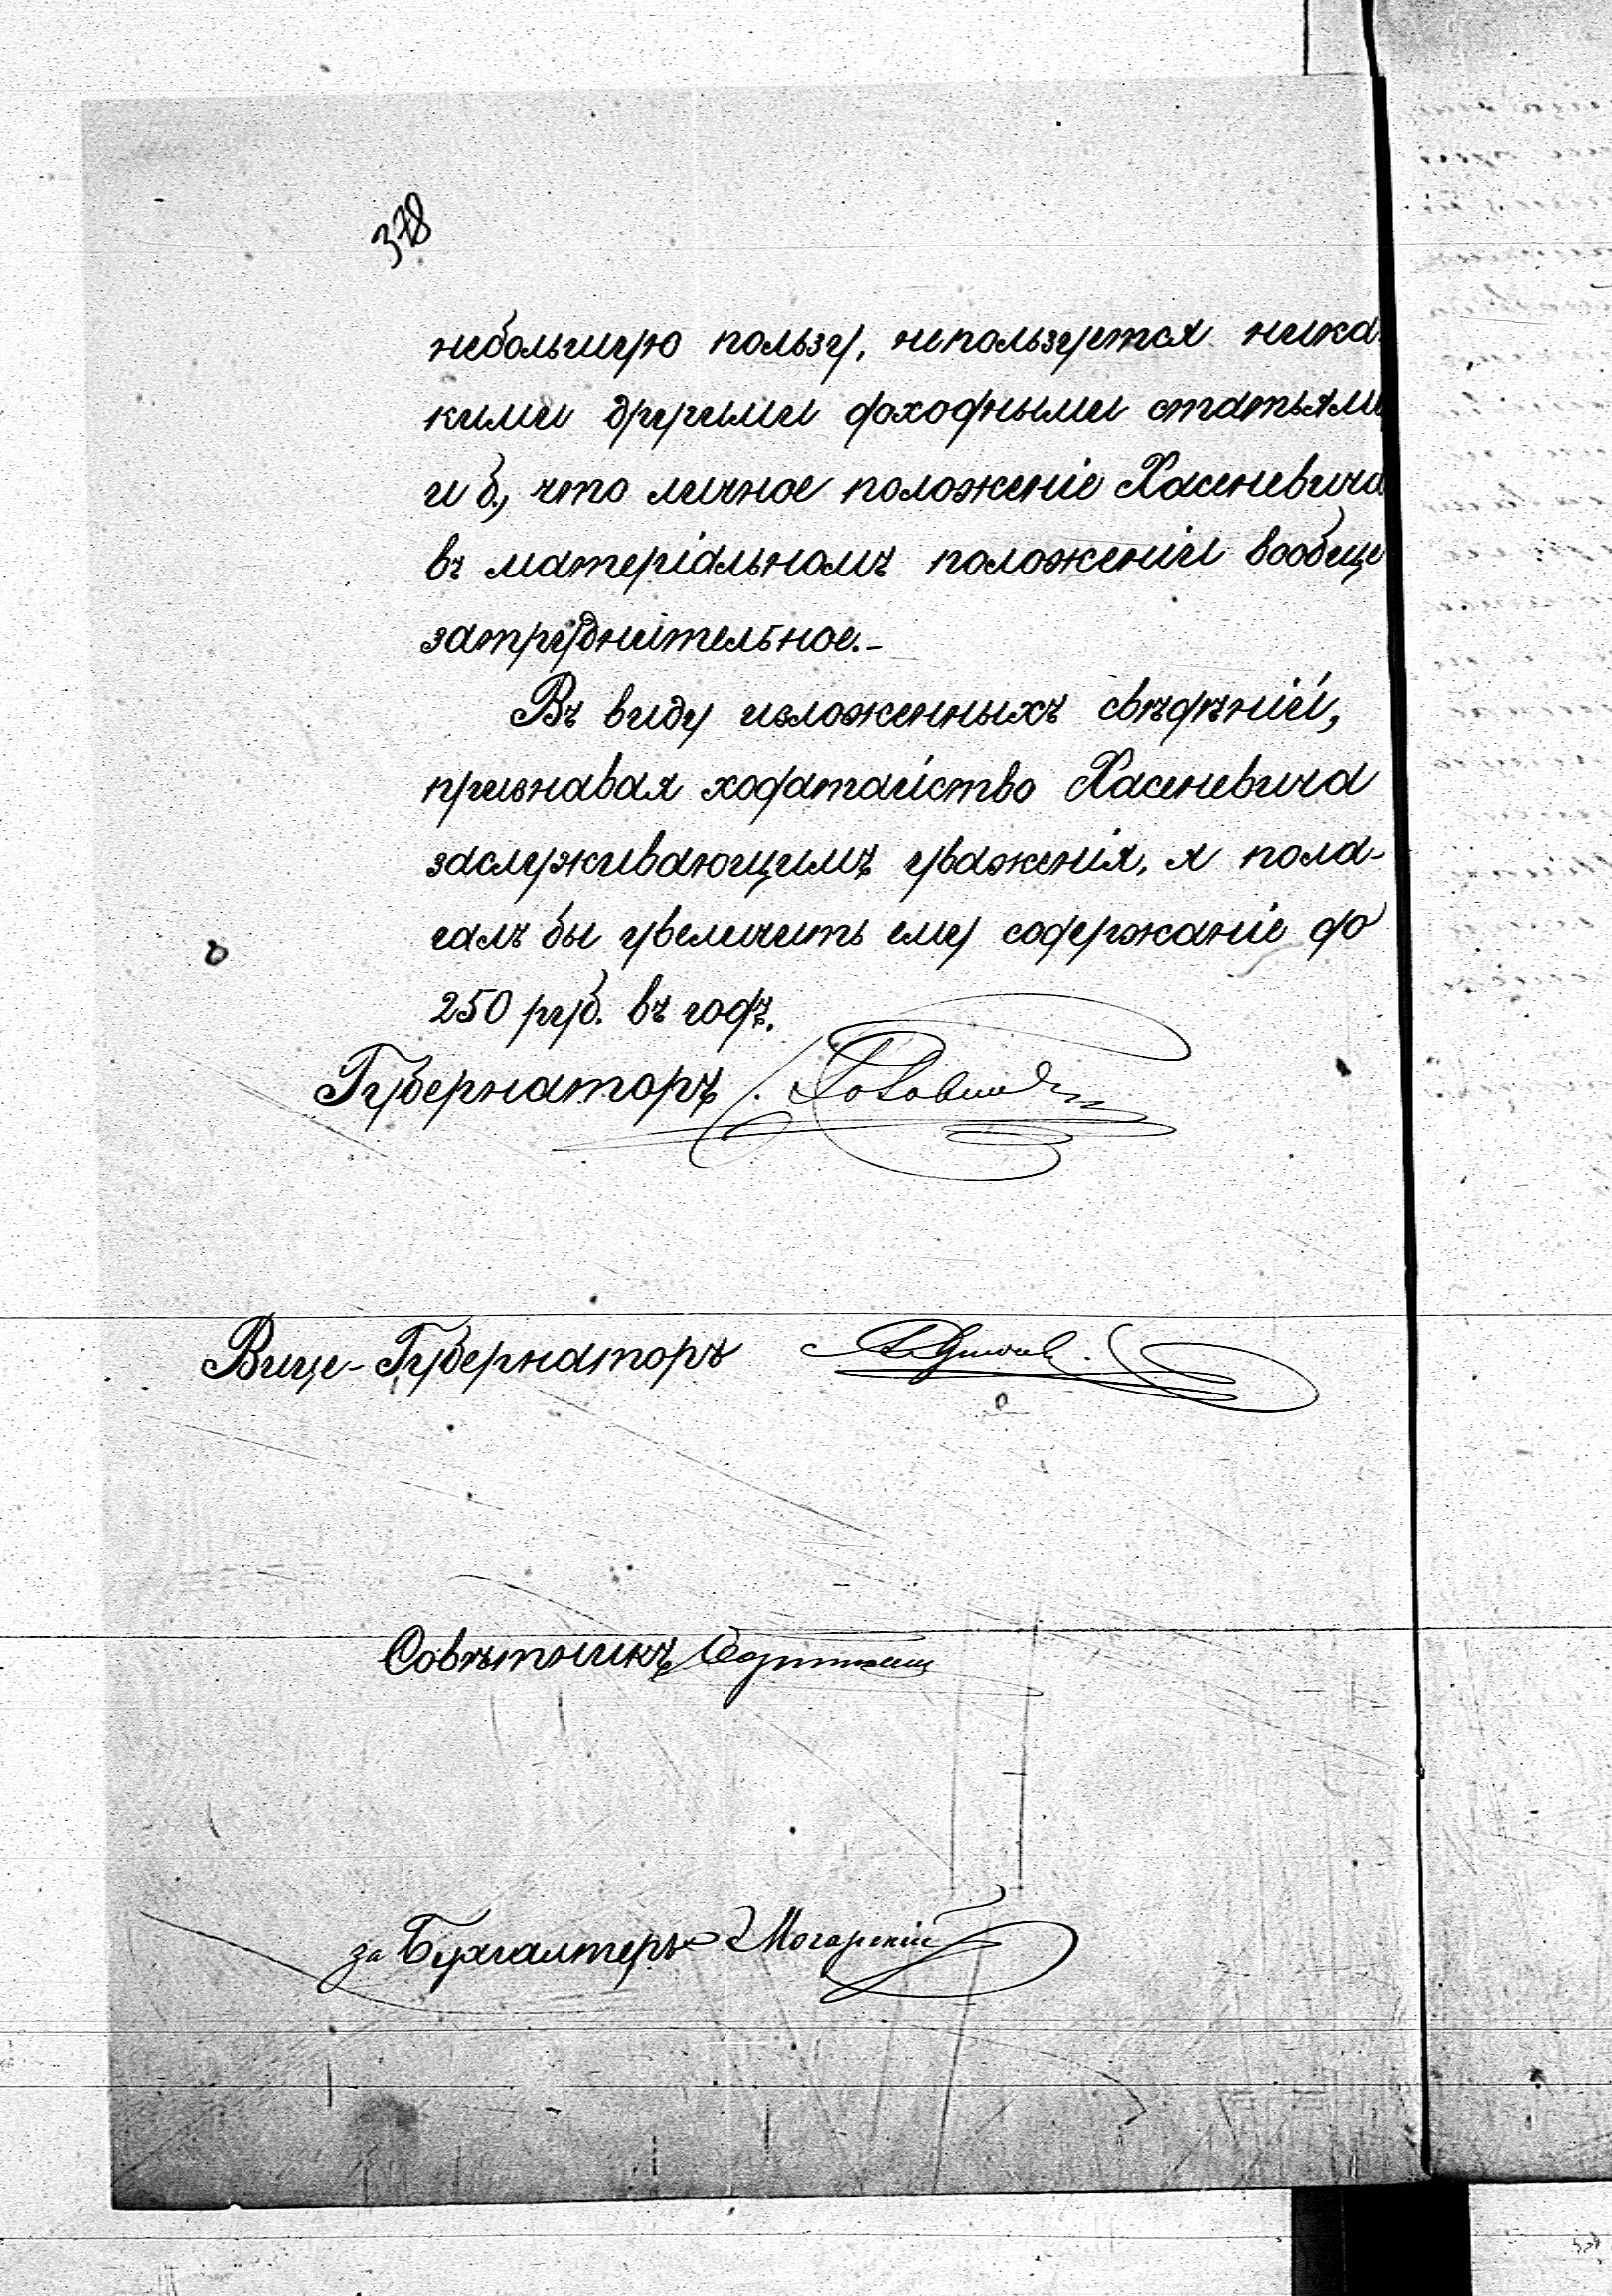 378
небольшую пользу, непользуется ника-
кими другими доходными статьями
и б, что личное положеніе Хасеневича
въ матеріальномъ положеніи вообще
затруднительное.-
Въ виду изложенныхъ свѣдѣній,
признавая ходатайство Хасеневича
заслуживающимъ уваженія, я пола-
галъ бы увеличить ему содержаніе до
250 руб. въ годъ.
Губернаторъ
Вице-Губернаторъ
Совѣтникъ
за Бухгалтеръ Могарскій